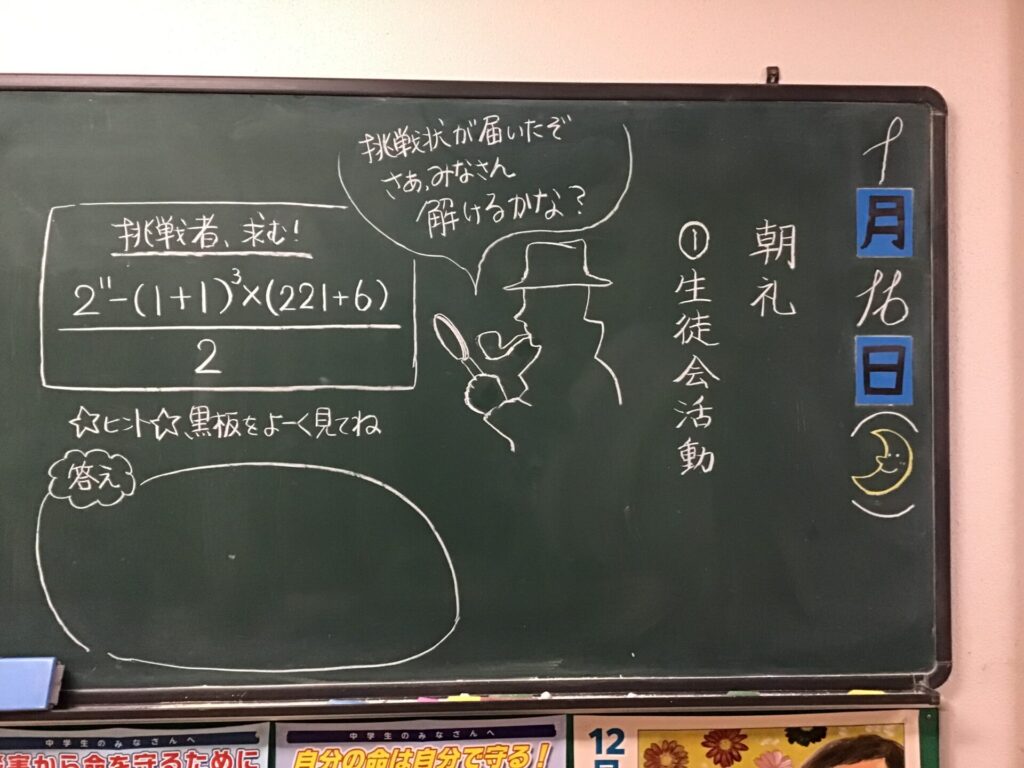 1月16日( )
朝礼
①生徒会活動
挑戦状が届いたぞ
さぁ、みなさん
解けるかな?
挑戦者、求む!
2¹¹-(1+1)³×(221+6)
2
☆ヒント☆黒板をよーく見てね
答え
中学生のみなさんへ
害から命を守るために
中学生のみなさんへ
自分の命は自分で守る!
12